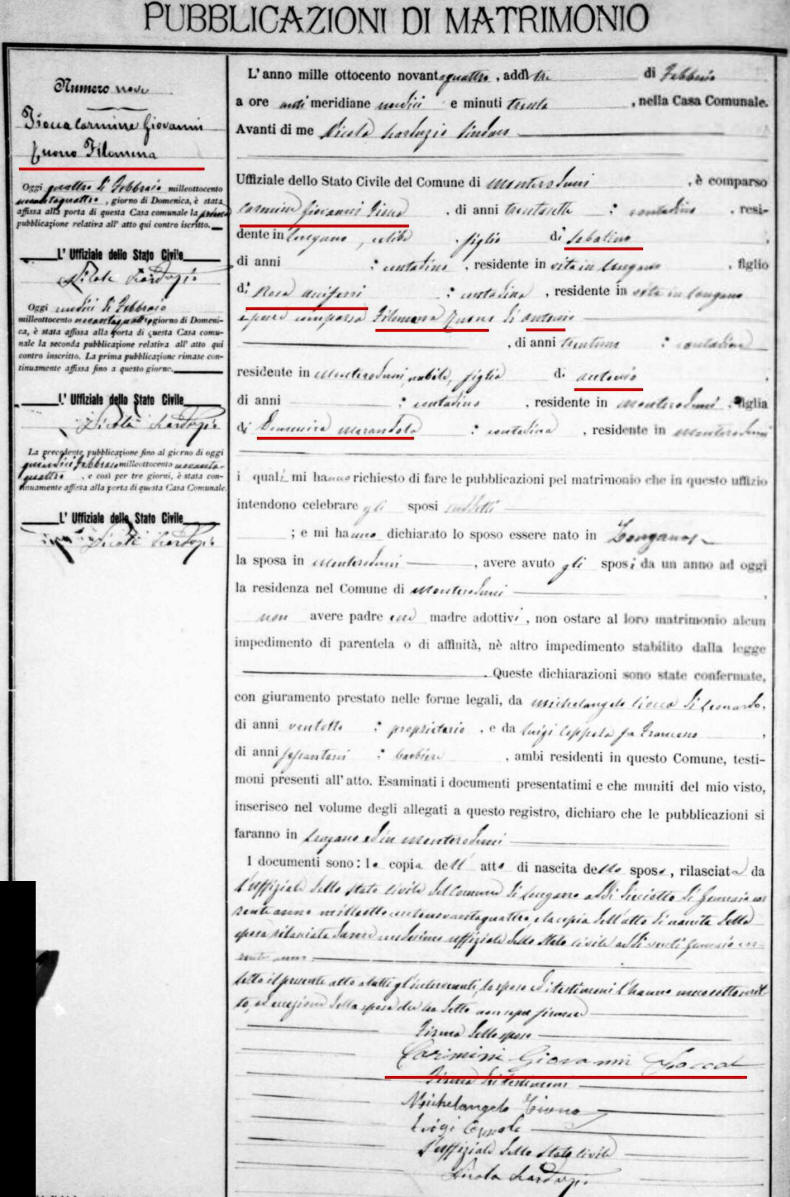 PUBBLICAZIONI DI MATRIMONIO
Numero nove
Tiocca Carmine Giovanni
Zuono Filomena
Oggi quattro di Febbraio milleottocento
novantaquattro, giorno di Domenica, è stata
affissa alla porta di questa Casa comunale la prima
pubblicazione relativa all'atto qui contro iscritto.
L'Uffiziale dello Stato Civile
Nicola
Oggi undici di Febbraio
milleottocento novantaquattro giorno di Domeni-
ca, è stata affissa alla porta di questa Casa comu-
nale la seconda pubblicazione relativa all'atto qui
contro inscritto. La prima pubblicazione rimase con-
tinuamente affissa fino a questo giorno.
L'Uffiziale dello Stato Civile
Nicola
La precedente pubblicazione fino al giorno di oggi
quindici Febbraio milleottocento novanta-
quattro, e così per tre giorni, è stata con-
tinuamente affissa alla porta di questa Casa Comunale.
L'Uffiziale dello Stato Civile
Nicola
L'anno mille ottocento novantaquattro, addì tre di Febbraio
a ore anti meridiane undici e minuti trenta, nella Casa Comunale.
Avanti di me Nicola Sindaco
Uffiziale dello Stato Civile del Comune di Monteroduni, è comparso
Carmine Giovanni, di anni trentasette: contadino, resi-
dente in Longano, celibe, figlio di Sabatino,
di anni : contadino, residente in vita in Longano, figlio
di Rosa : contadina, residente in vita in Longano
e pure comparsa Filomena Zuono di Antonio
, di anni trentuno : contadina
residente in Monteroduni, nubile, figlia di Antonio,
di anni : contadino, residente in Monteroduni figlia
di Domenica Marandola : contadina, residente in Monteroduni
i quali mi hanno richiesto di fare le pubblicazioni pel matrimonio che in questo uffizio
intendono celebrare gli sposi suddetti
; e mi hanno dichiarato lo sposo essere nato in Longano
la sposa in Monteroduni, avere avuto gli sposi da un anno ad oggi
la residenza nel Comune di Monteroduni,
non avere padre madre adottivi, non ostare al loro matrimonio alcun
impedimento di parentela o di affinità, nè altro impedimento stabilito dalla legge
. Queste dichiarazioni sono state confermate,
con giuramento prestato nelle forme legali, da Michelangelo di Leonardo,
di anni ventotto : proprietario, e da Luigi Coppola fu Francesco,
di anni : barbiere, ambi residenti in questo Comune, testi-
moni presenti all'atto. Esaminati i documenti presentatimi e che muniti del mio visto,
inserisco nel volume degli allegati a questo registro, dichiaro che le pubblicazioni si
faranno in Longano ed in Monteroduni
I documenti sono: la copia dell'atto di nascita dello sposo, rilasciata da
l'uffiziale dello stato civile del Comune di Longano addì diciotto di Gennaio cor-
rente anno milleottocentonovantaquattro e la copia dell'atto di nascita della
sposa rilasciata medesimo uffiziale dello stato civile addì venti Gennaio cor-
rente anno
Letto il presente atto a tutti gl'intervenuti, lo sposo ed i testimoni l'hanno meco sottoscrit-
to, ad eccezione della sposa che ha detto non saper firmare
Firma dello sposo
Carmini Giovanni Tiocca
Firma dei testimoni
Michelangelo
Luigi Coppola
L'uffiziale dello stato civile
Nicola